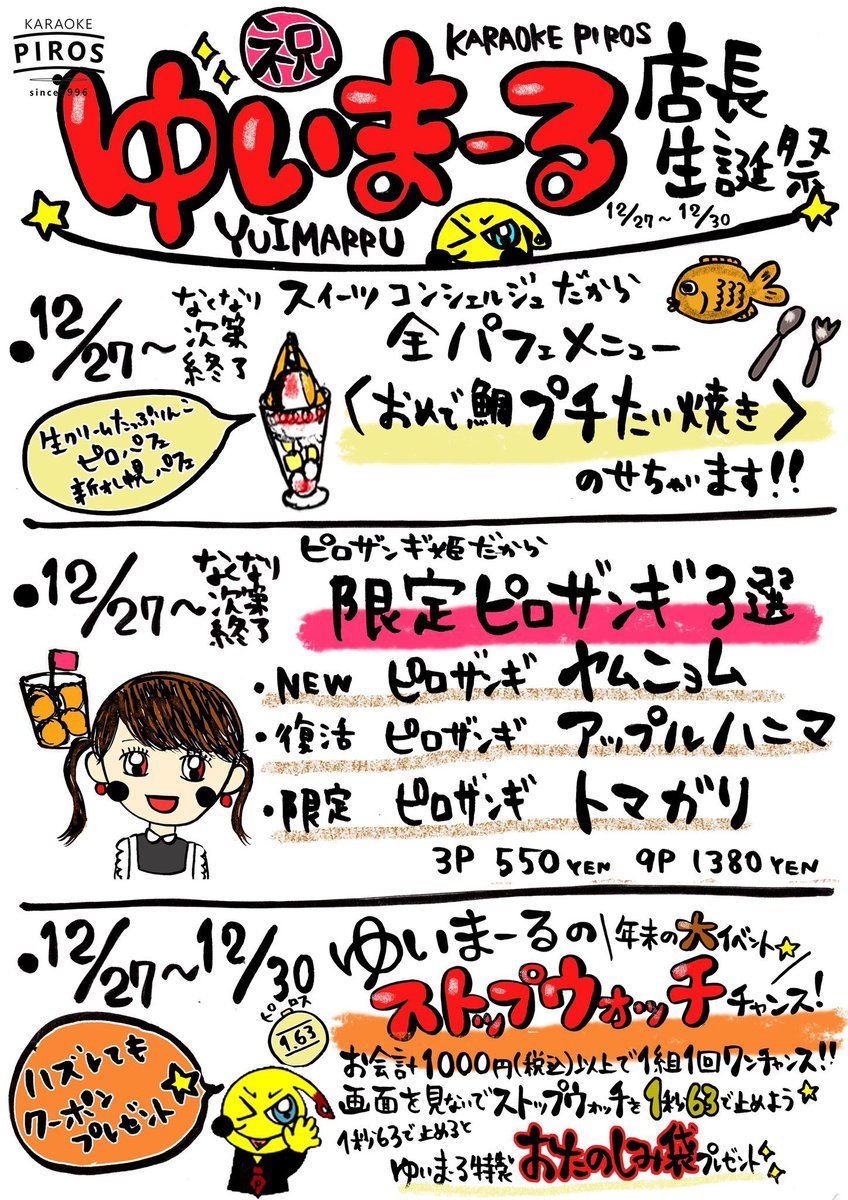 KARAOKE
PIROS
since 1996
祝
KARAOKE PIROS
ゆいまーる
店長
生誕祭
YUIMARRU
12/27~12/30
・12/27~
なくなり
次第
終了
スイーツコンシェルジュだから
全パフェメニュー
〈おめで鯛プチたい焼き〉
のせちゃいます!!
生クリームたっぷりんご
ピロパフェ
新札幌パフェ
・12/27~
なくなり
次第
終了
ピロザンギ姫だから
限定ピロザンギ3選
・NEW ピロザンギ ヤムニョム
・復活 ピロザンギ アップルハニマ
・限定 ピロザンギ トマガリ
3P 550YEN 9P 1380YEN
・12/27~12/30
ゆいまーるの\年末の大イベント/
ストップウォッチチャンス!
ピロス
1.63
ハズレても
クーポン
プレゼント
お会計1000円(税込)以上で1組1回ワンチャンス!!
画面を見ないでストップウォッチを1秒63で止めよう
1秒63で止めると
ゆいまーる特製おたのしみ袋プレゼント